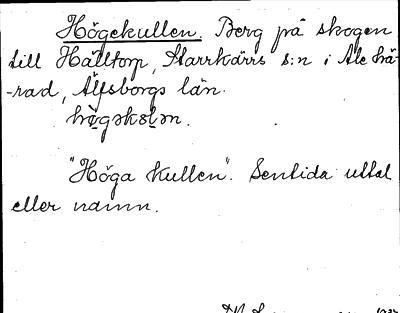 Högekullen. Berg på skogen
till Hälltorp, Starrkärrs s:n i Ale hä-
-rad, Älfsborgs län.
"Höga kullen". Sentida uttal
eller namn.